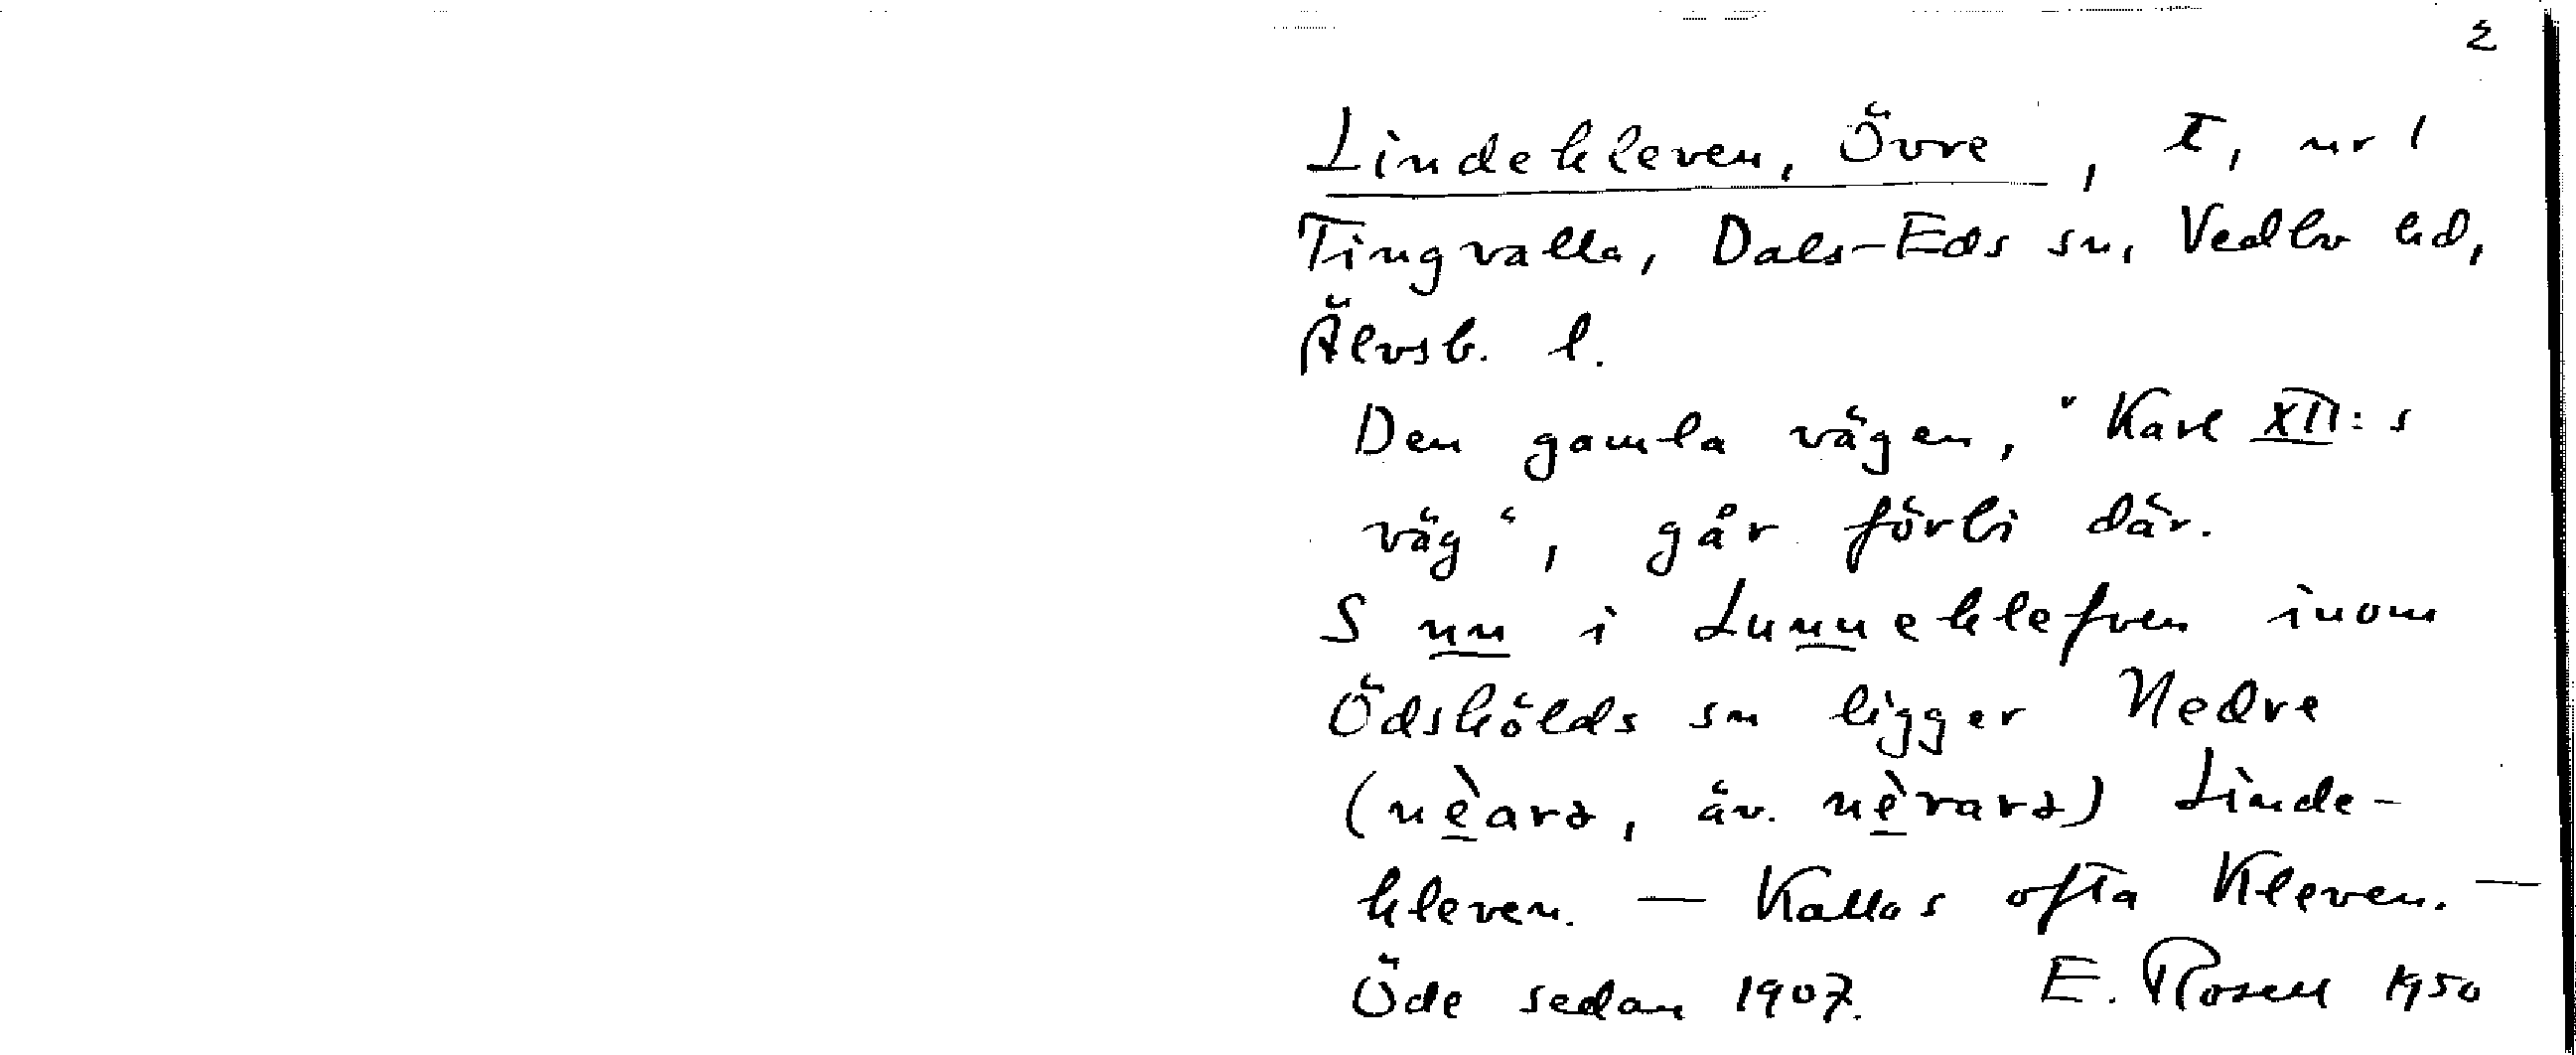 2
Lindekleven, Övre, t, nr 1
Tingvalla, Dals-Eds sn, Vedbo hd,
Älvsb. l.
Den gamla vägen, "Karl XII:s
väg", går förbi där.
S nn i Lunneklefven inom
Ödskölds sn ligger Nedre
(nèarə, äv. nèrarə) Linde-
kleven. — Kallas ofta Kleven. —
Öde sedan 1907. E. Rosell 1950